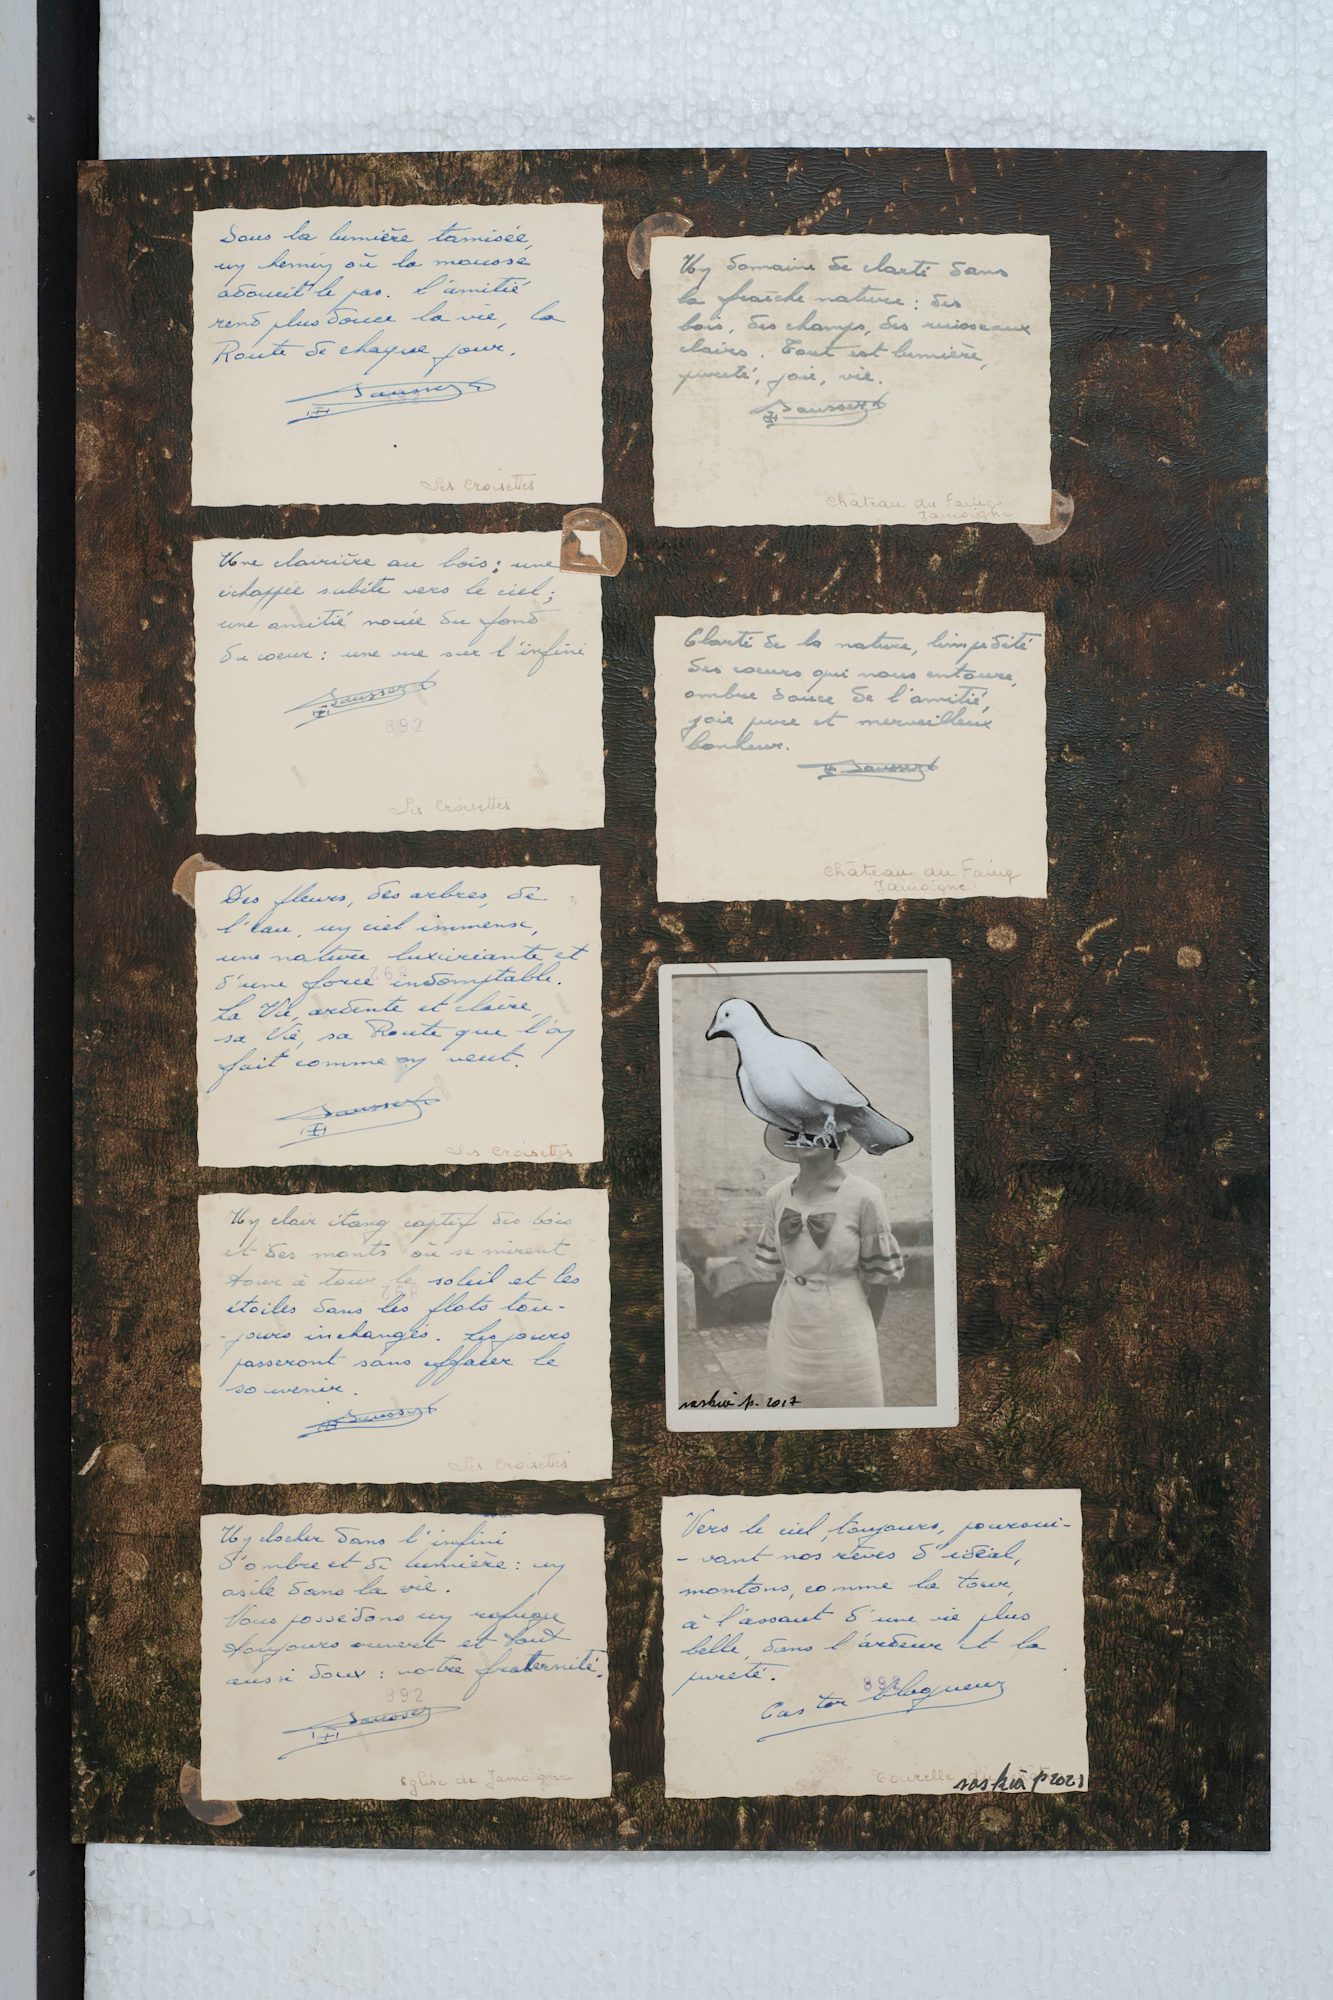 Sous la lumière tamisée,
uy chemiy où la mousse
adoucit le pas. L'amitié
rend plus douce la vie, la
Route de chaque jour.
Les Croisettes
Une clairière au bois : une
échappée subite vers le ciel ;
une amitié nouée du fond
du coeur : une vue sur l'infini
892
Les Croisettes
Des fleurs, des arbres, de
l'eau, uy ciel immense,
une nature luxuriante et
d'une force indomptable.
La Vie, ardente et claire,
sa Vie, sa Route que l'oy
fait comme oy veut.
892
Les Croisettes
Uy clair étang captif des bois
et des monts où se mirent
tour à tour le soleil et les
étoiles dans les flots tou-
-jours inchangés. Les jours
passeront sans effacer le
souvenir.
892
Les Croisettes
Uy clocher dans l'infini
d'ombre et de lumière : uy
asile dans la vie.
Nous possédons uy refuge
toujours ouvert et tout
aussi doux : notre fraternité.
892
Eglise de Jamoigne
Uy domaine de clarté dans
la fraîche nature : des
bois, des champs, des ruisseaux
clairs. Tout est lumière,
pureté, joie, vie.
Château du Faing
Jamoigne
Clarté de la nature, limpidité
des coeurs qui nous entoure,
ombre douce de l'amitié,
joie pure et merveilleux
bonheur.
Château du Faing
Jamoigne
saskia p. 2017
Vers le ciel, toujours, poursui-
-vant nos rêves d'idéal,
montons, comme la tour,
à l'assaut d'une vie plus
belle, dans l'ardeur et la
pureté.
892
Castor
Tourelle
saskia p 2021